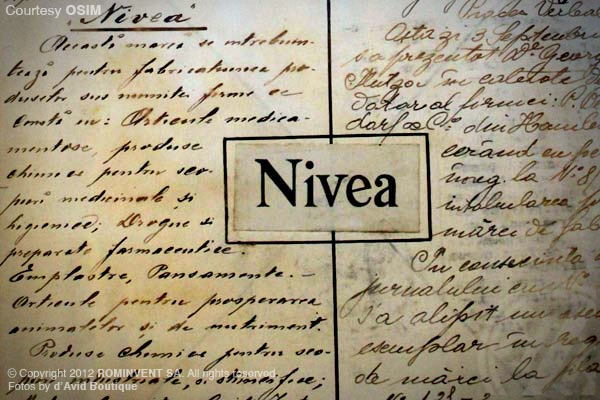 Courtesy OSIM
"Nivea"
Această marcă se întrebuin-
țează pentru fabricațiunea pro-
duselor sus numitei firme ce
constă în: Articole medica-
mentose, produse
chimice pentru sco-
puri medicinale si
higienice; Drogue si
preparate farmaceutice.
Emplastre, Pansamente. –
Articole pentru prosperarea
animalelor si de nutriment.
Produse chimice pentru sco-
Nivea
Proces Verbal
Astăzi 3 Septembrie
s'a prezentat Dl. George
în calitate de
datar al firmei: P.
dorf & Co. din Hamb
cerând
la No 8
intabularea
mărcei de fab
In consecință
jurnalului
s'a alipit un
exemplar în reg
de mărci la
© Copyright 2012 ROMINVENT SA. All rights reserved.
Fotos by d'Avid Boutique